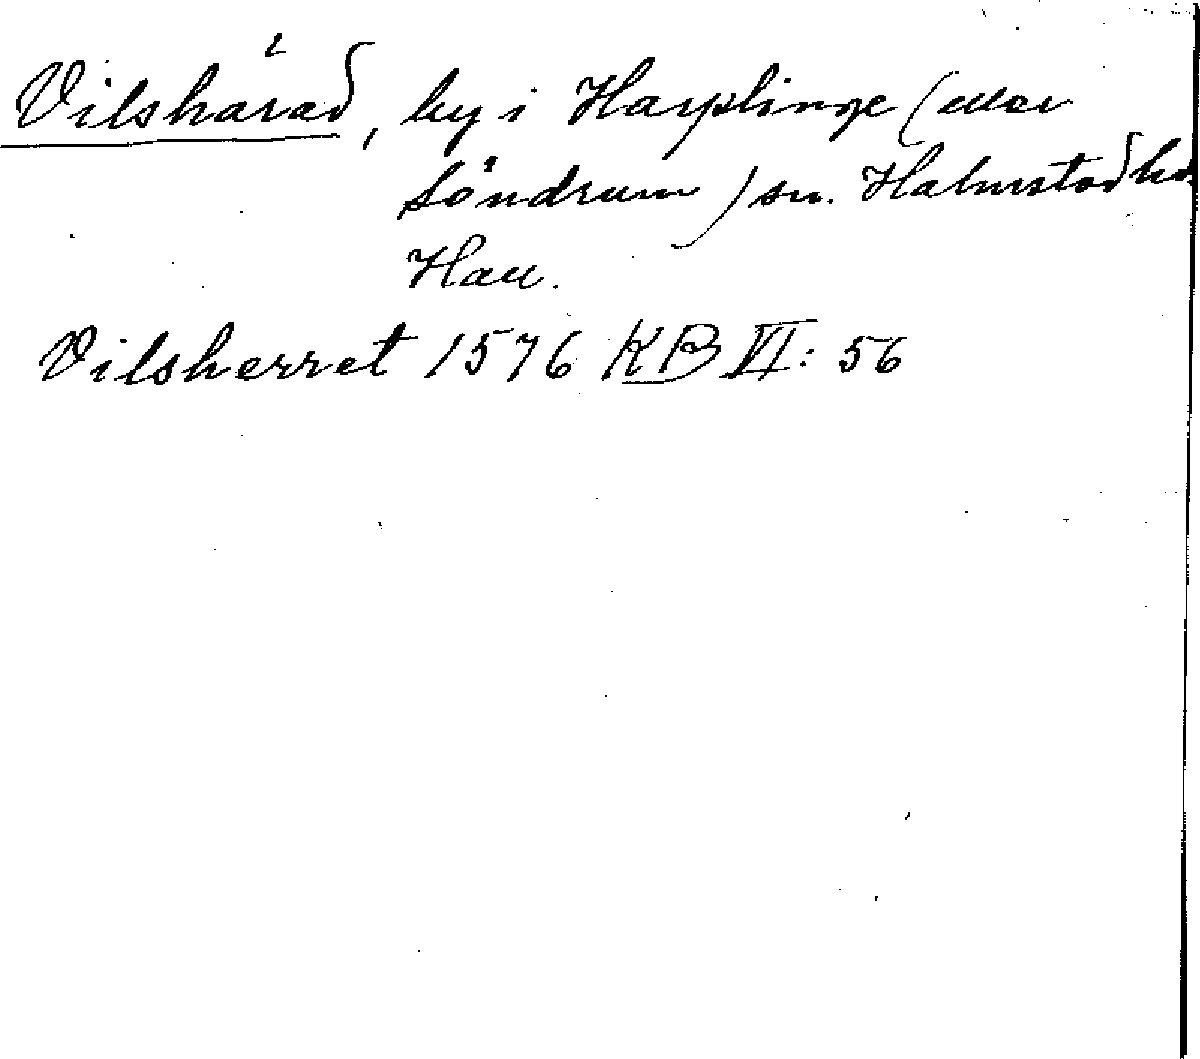 Vilshärad, by i Harplinge (eller
Söndrum) sn. Halmstad hd
Hall.
Vilsherret 1576 KB VI: 56